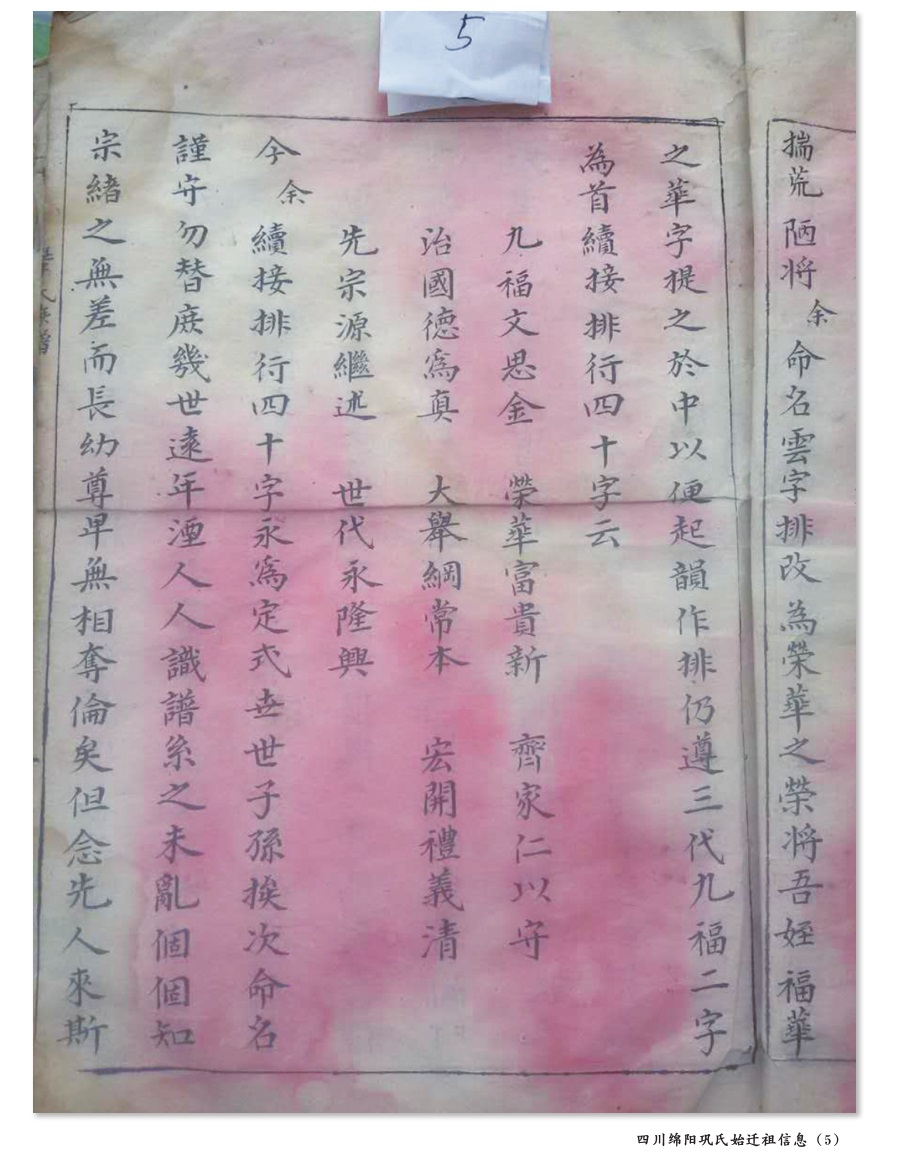 5
揣荒陋将余命名雲字排改為榮華之榮将吾姪福華
之華字提之於中以便起韻作排仍遵三代九福二字
為首續接排行四十字云
九福文思金 榮華富貴新 齊家仁以守
治國德爲真 大舉綱常本 宏開禮義清
先宗源繼述 世代永隆興
今余續接排行四十字永爲定式世世子孫挨次命名
謹守勿替庶幾世遠年湮人人識譜系之未亂個個知
宗緒之無差而長幼尊卑無相奪倫矣但念先人來斯
四川绵阳巩氏始迁祖信息（5）